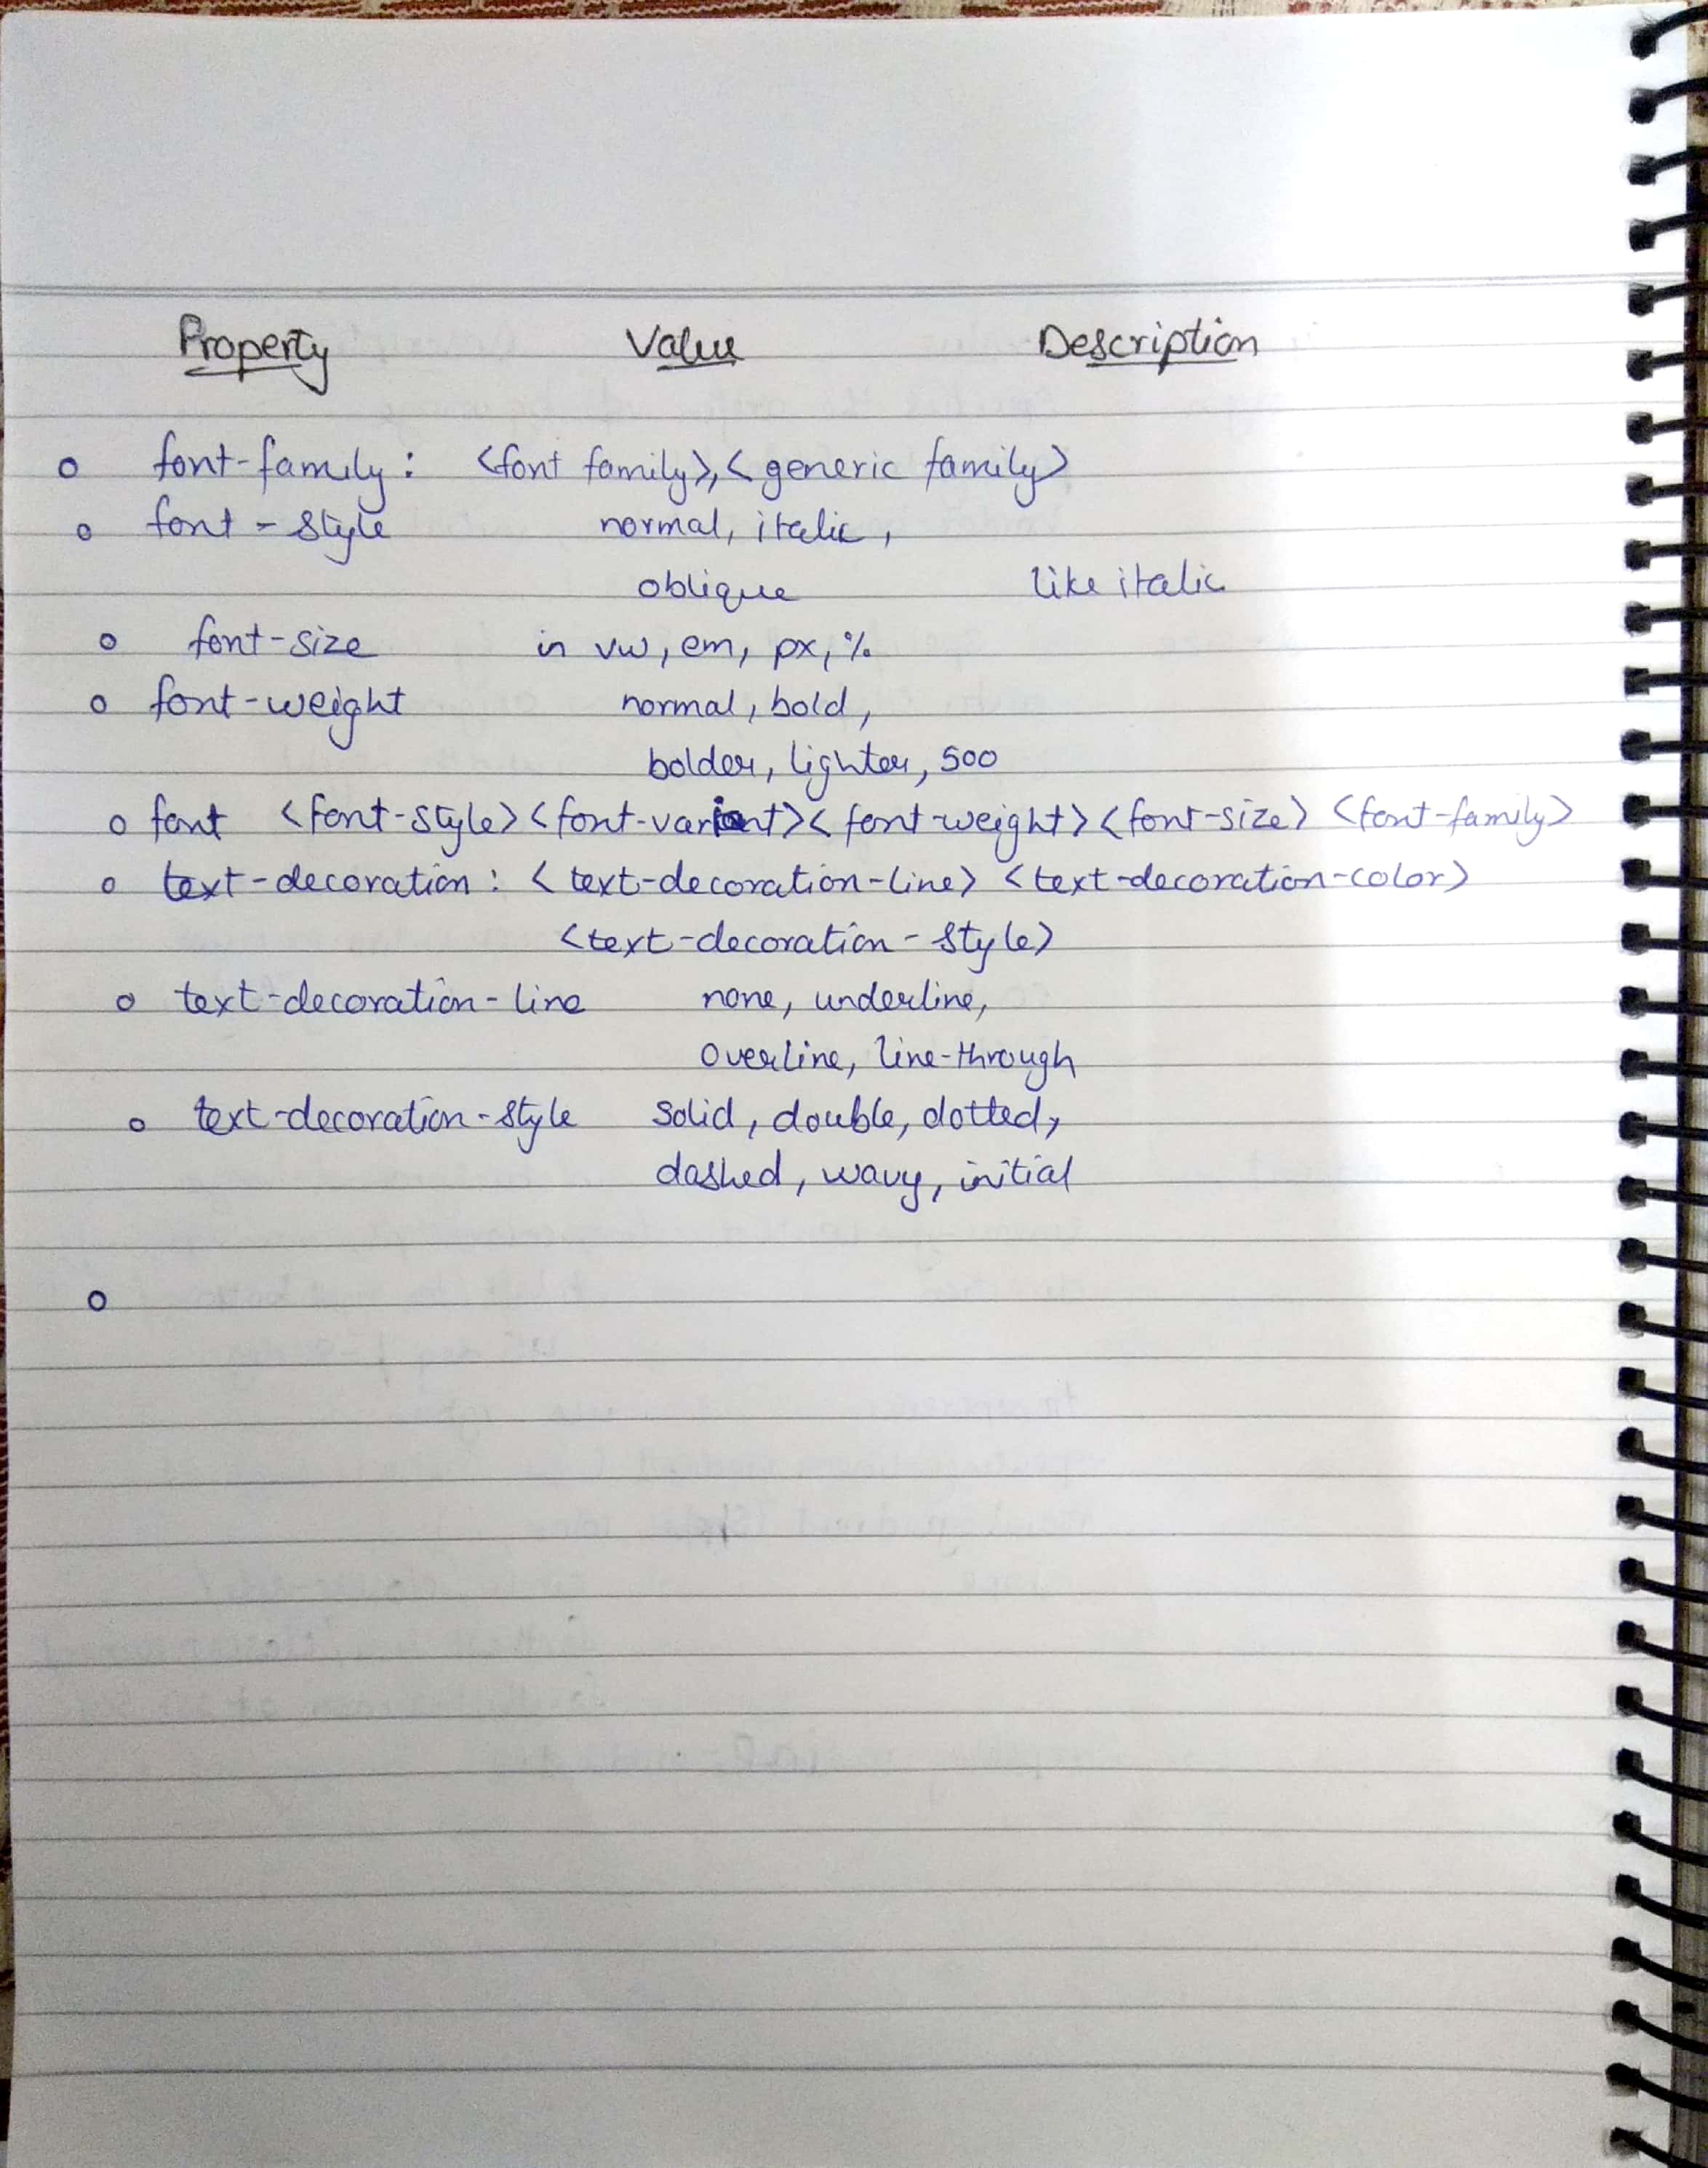 Property Value Description
o font-family: <font family>,<generic family>
o font-style normal, italic,
oblique like italic
o font-size in vw, em, px, %
o font-weight normal, bold,
bolder, lighter, 500
o font <font-style><font-variant><font-weight><font-size> <font-family>
o text-decoration: <text-decoration-line> <text-decoration-color>
<text-decoration-style>
o text-decoration-line none, underline,
overline, line-through
o text-decoration-style solid, double, dotted,
dashed, wavy, initial
o